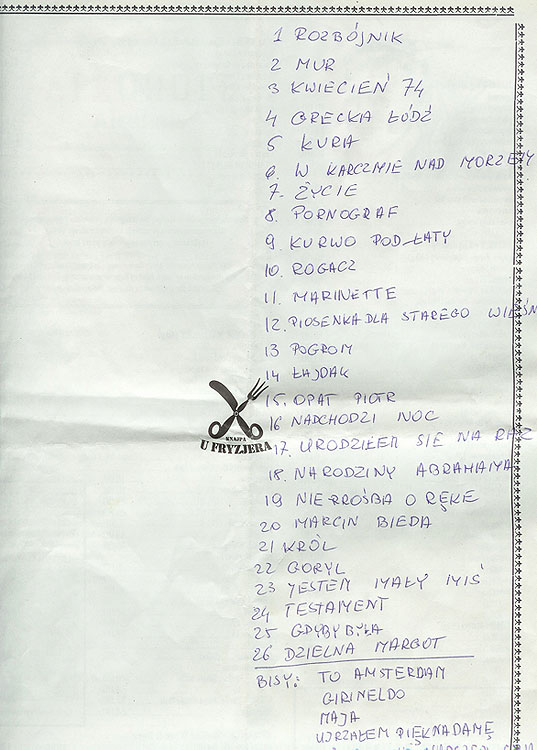 1 ROZBÓJNIK
2 MUR
3 KWIECIEŃ 74
4 GRECKA ŁÓDŹ
5 KURA
6. W KARCZMIE NAD MORZEM
7. ŻYCIE
8. PORNOGRAF
9. KURWO POD ŁATY
10. ROGACZ
11. MARINETTE
12. PIOSENKA DLA STAREGO
13 POGROM
14 ŁAJDAK
15. OPAT PIOTR
16 NADCHODZI NOC
KNAJPA
U FRYZJERA
17. URODZIŁEM SIĘ NA RAZ
18. NARODZINY ABRAHAMA
19 NIE-PROŚBA O RĘKĘ
20 MARCIN BIEDA
21 KRÓL
22 GORYL
23 JESTEM MAŁY MIŚ
24 TESTAMENT
25 GDYBY BYŁA
26 DZIELNA MARGOT
BISY: TO AMSTERDAM
GIRINELDO
MAJA
UJRZAŁEM PIĘKNĄ DAMĘ